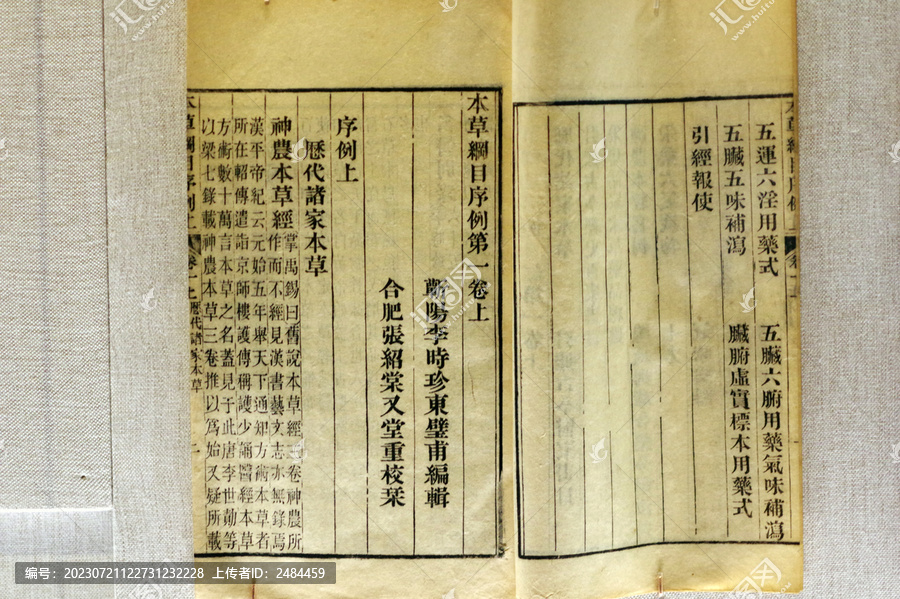 五運六淫用藥式
五臟六腑用藥氣味補瀉
五臟五味補瀉
臟腑虛實標本用藥式
引經報使
本草綱目序例第一卷上
蘄陽李時珍東璧甫編輯
合肥張紹棠又堂重校栞
序例上
歷代諸家本草
神農本草經
掌禹錫曰舊說本草經三卷神農所
作而不經見漢書藝文志亦無錄焉
漢平帝紀云元始五年舉天下通知方術本草者
所在軺傳遣詣京師樓護傳稱護少誦醫經本草
方術數十萬言本草之名蓋見于此唐李世勣等
以梁七錄載神農本草三卷推以爲始又疑所載
本草綱目序例上
卷一上
歷代諸家本草
一
编号：20230721122731232228 上传者ID：2484459
汇图网
www.huitu.com